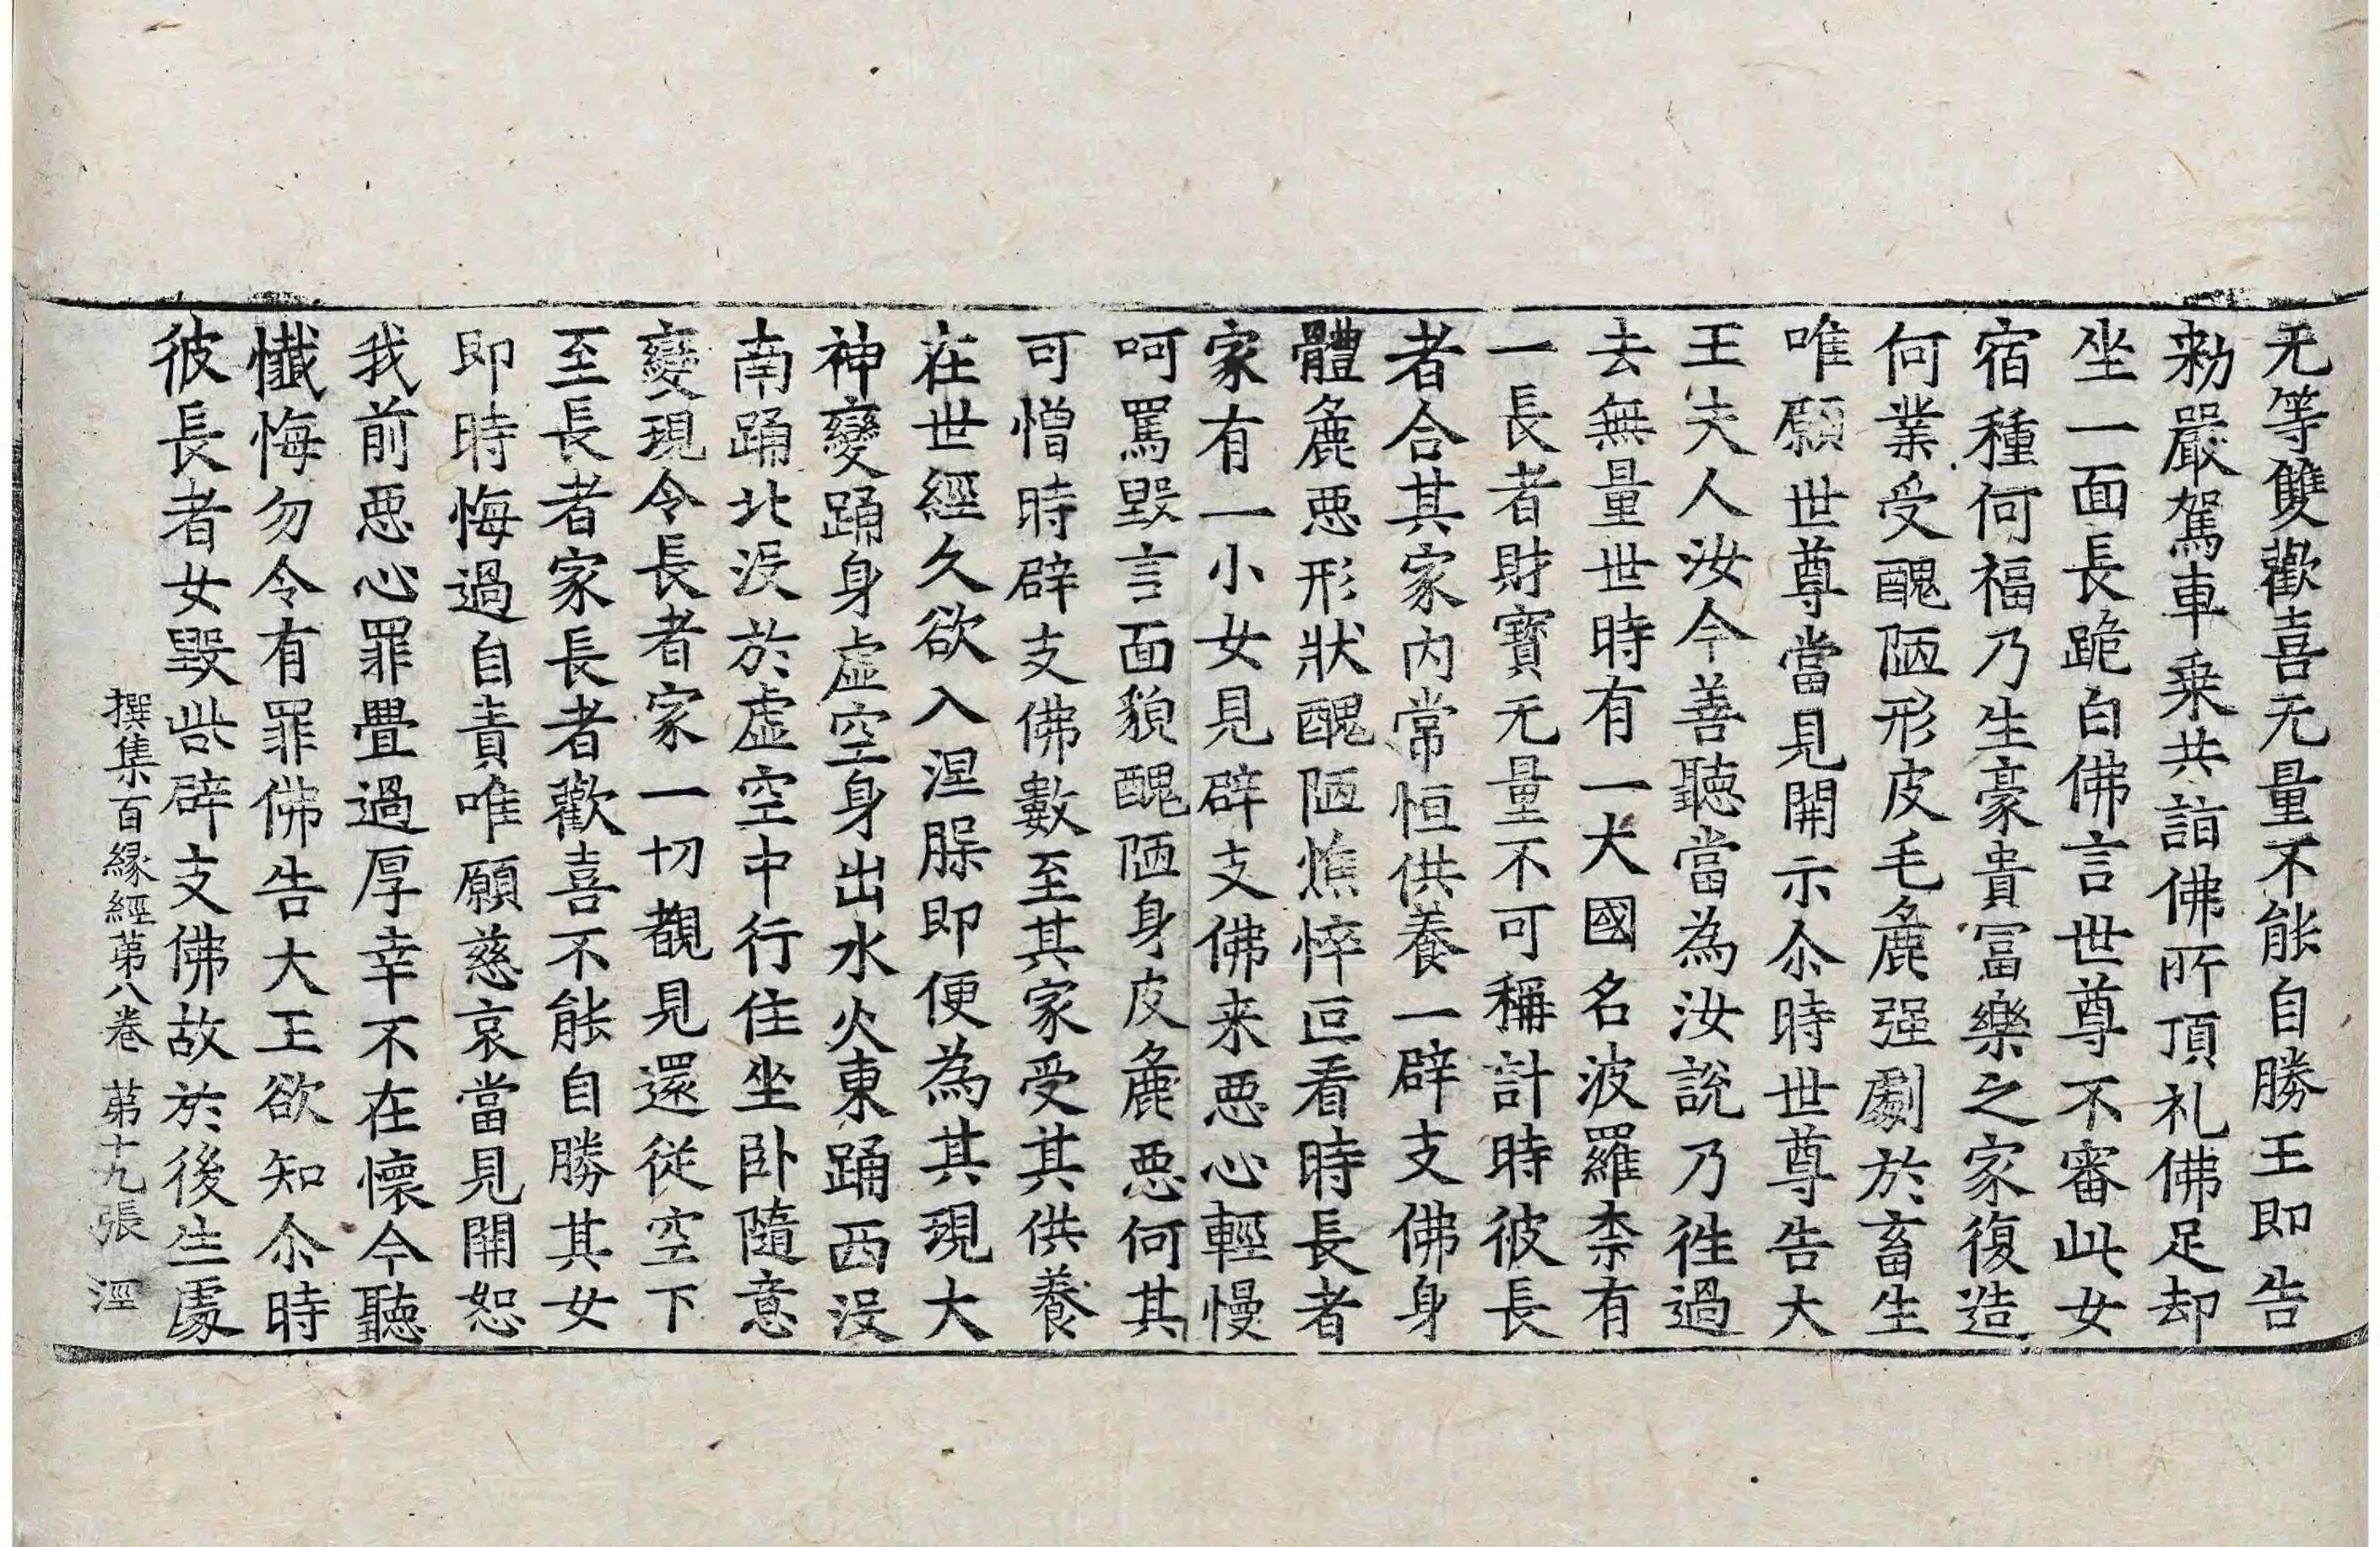 无等雙歡喜无量不能自勝王即告
勑嚴駕車乗共詣佛所頂礼佛足却
坐一面長跪白佛言世尊不審此女
宿種何福乃生豪貴冨樂之家復造
何業受醜陋形皮毛麁强劇於畜生
唯願世尊當見開示尒時世尊告大
王夫人汝今善聽當為汝說乃徃過
去無量世時有一大國名波羅柰有
一長者財寳无量不可稱計時彼長
者合其家内常恒供養一辟支佛身
體麁惡形狀醜陋憔悴叵看時長者
家有一小女見辟支佛来惡心輕慢
呵罵毀言面貌醜陋身皮麁惡何其
可憎時辟支佛數至其家受其供養
在世經久欲入涅脲即便為其現大
神變踊身虚空身出水火東踊西没
南踊北没於虚空中行住坐卧隨意
變現令長者家一切覩見還從空下
至長者家長者歡喜不能自勝其女
即時悔過自責唯願慈哀當見開恕
我前惡心罪疊過厚幸不在懷今聽
懺悔勿令有罪佛告大王欲知尒時
彼長者女毀呰辟支佛故於後生處
撰集百緣經苐八卷 苐十九張 涇